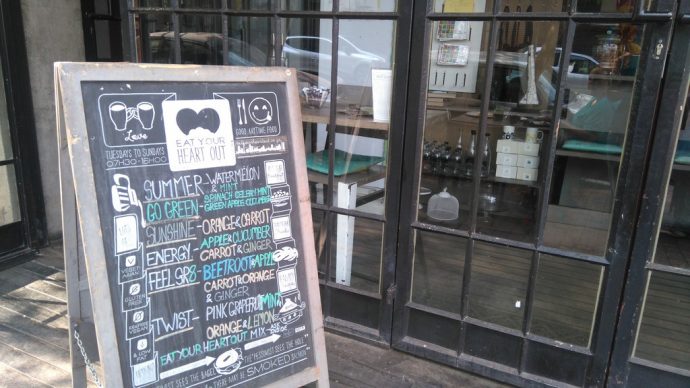 Love
EAT YOUR
HEART OUT
GOOD ANYTIME FOOD
TUESDAYS TO SUNDAYS
07H30-16H00
SUMMER - WATERMELON
& MINT
GO GREEN - SPINACH CELERY MINT
GREEN APPLE CUCUMBER
SUNSHINE - ORANGE & CARROT
ENERGY - APPLE & CUCUMBER
CARROT & GINGER
FEEL SR8 - BEETROOT & APPLE
CARROT & ORANGE
& GINGER
TWIST - PINK GRAPEFRUIT MINT
ORANGE & LEMON
EAT YOUR HEART OUT MIX
GLUTEN
FREE
& LOW
SEES THE BAGEL THE PESSIMIST SEES THE HOLE
THERE MAY BE SMOKED SALMON